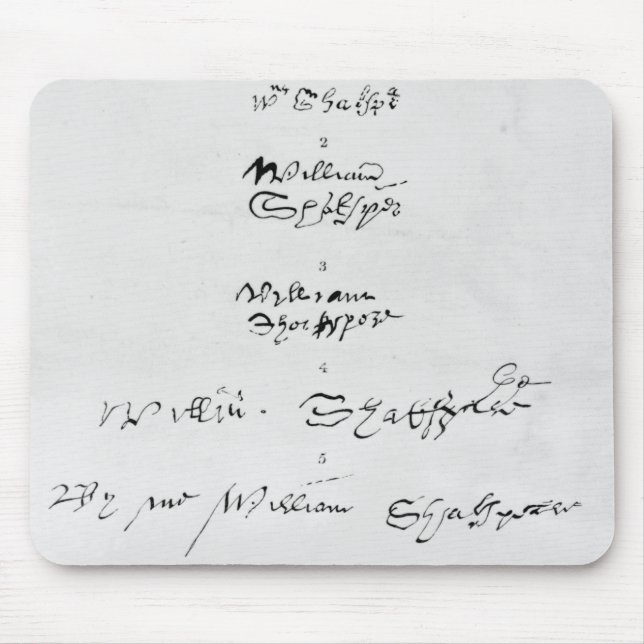 Wm Shakspē
2
William
Shakspēr
3
William
Shakspere
4
Willm. Shakspere
5
By me William Shakspeare